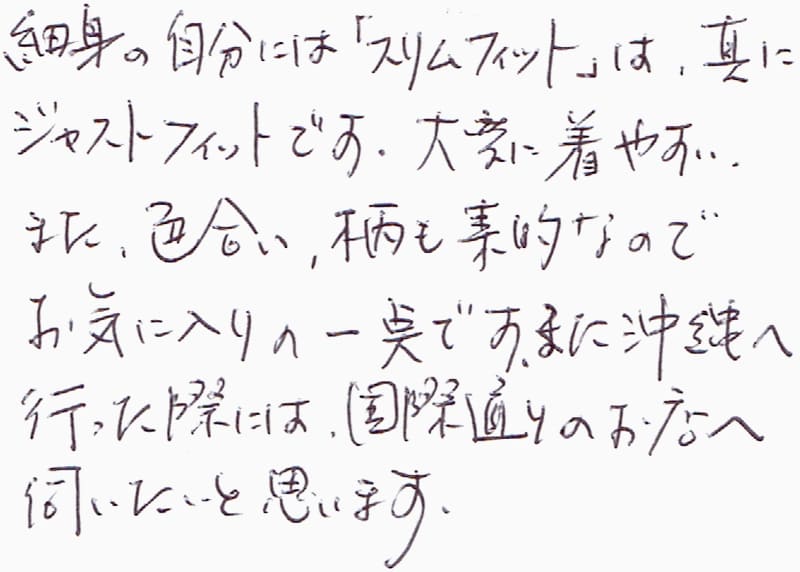 細身の自分には「スリムフィット」は、真に
ジャストフィットです。大変に着やすい。
また、色合い、柄も素的なので
お気に入りの一点です。また沖縄へ
行った際には、国際通りのお店へ
伺いたいと思います。